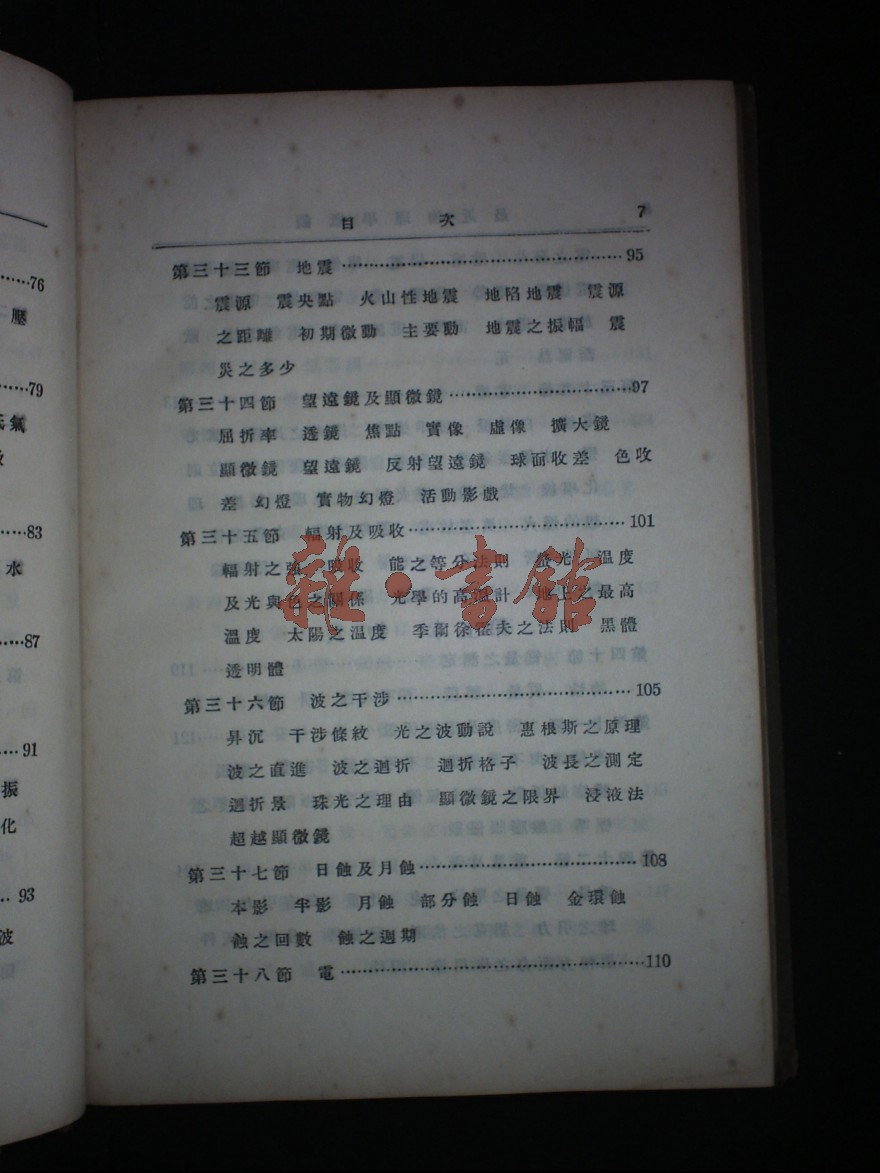 目次 7
第三十三節 地震……95
震源 震央點 火山性地震 地陷地震 震源
之距離 初期微動 主要動 地震之振幅 震
災之多少
第三十四節 望遠鏡及顯微鏡……97
屈折率 透鏡 焦點 實像 虛像 擴大鏡
顯微鏡 望遠鏡 反射望遠鏡 球面收差 色收
差 幻燈 實物幻燈 活動影戲
第三十五節 輻射及吸收……101
輻射之強 吸收 能之等分法則 螢光 溫度
及光與色之關係 光學的高溫計 地上之最高
溫度 太陽之溫度 季爾徐霍夫之法則 黑體
透明體
第三十六節 波之干涉……105
昇沉 干涉條紋 光之波動說 惠根斯之原理
波之直進 波之迴折 迴折格子 波長之測定
迴折景 珠光之理由 顯微鏡之限界 浸液法
超越顯微鏡
第三十七節 日蝕及月蝕……108
本影 半影 月蝕 部分蝕 日蝕 金環蝕
蝕之回數 蝕之週期
第三十八節 電……110
……76
壓
……79
氏氣
……83
水
……87
……91
振
化
……93
波
雜·書館